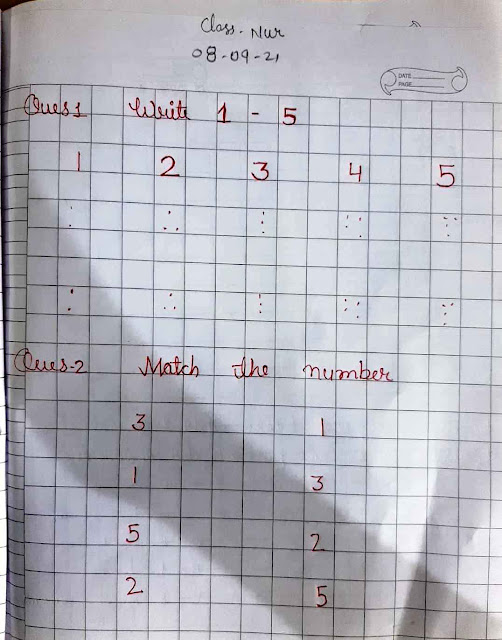 Class. Nur
08-09-21
DATE
PAGE
Ques1 Write 1 - 5
1 2 3 4 5
Ques-2 Match the number
3 1
1 3
5 2
2 5